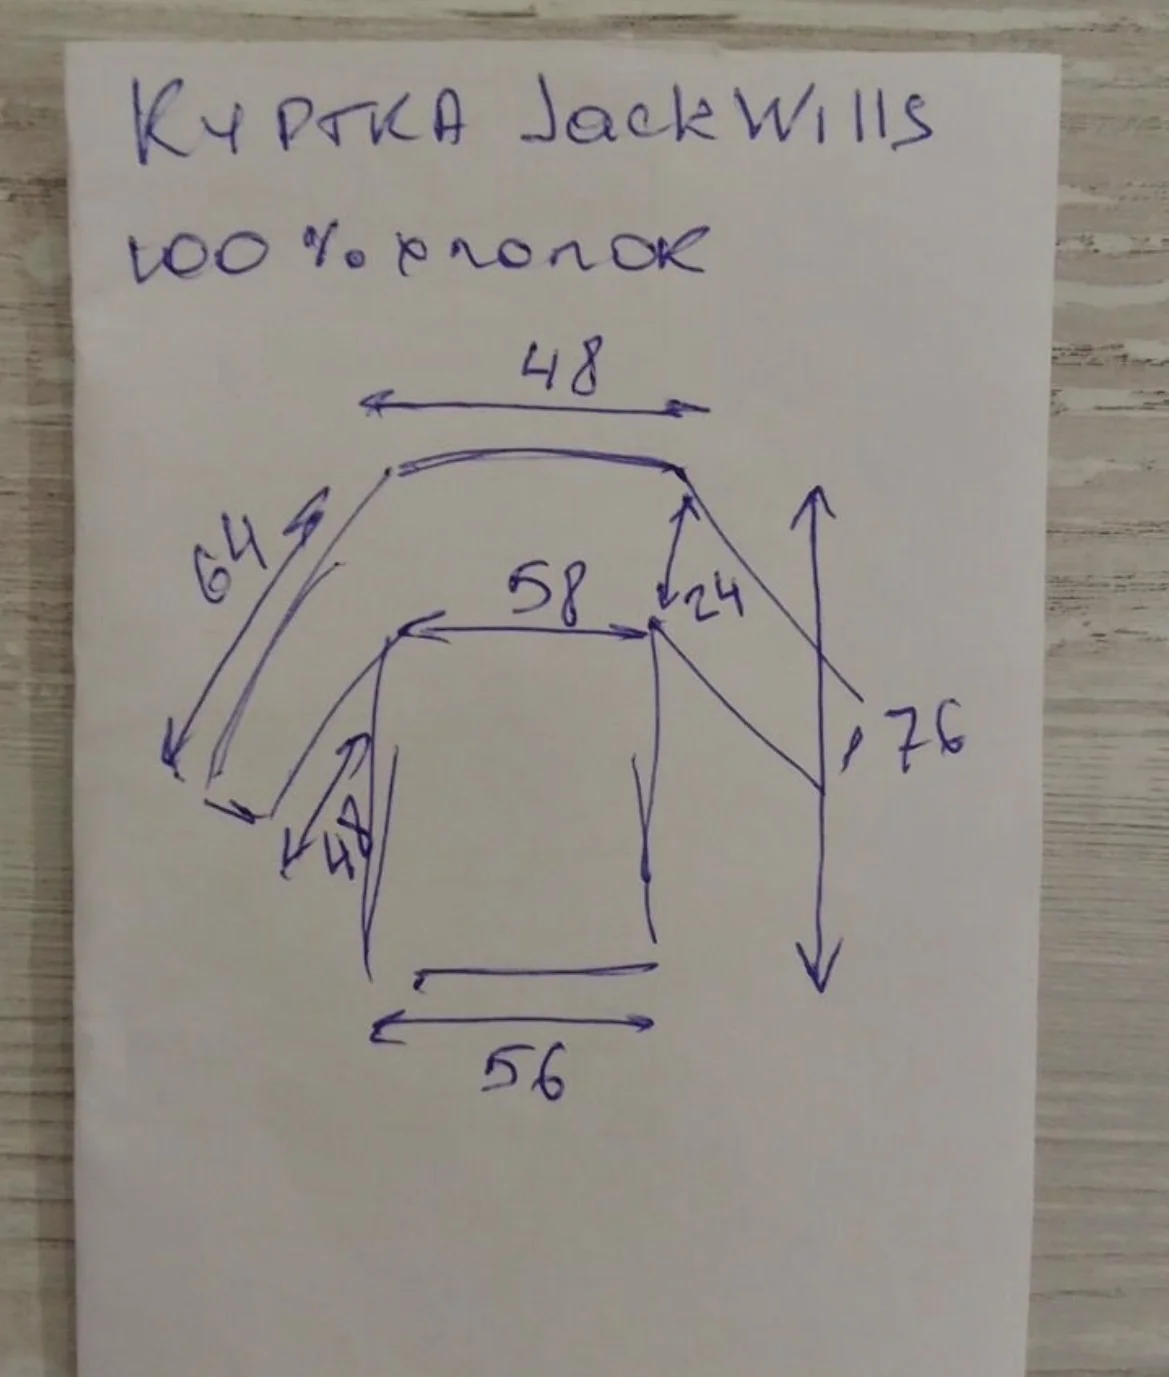 Куртка Jack Wills
100 % хлопок
48
64
58
24
76
48
56